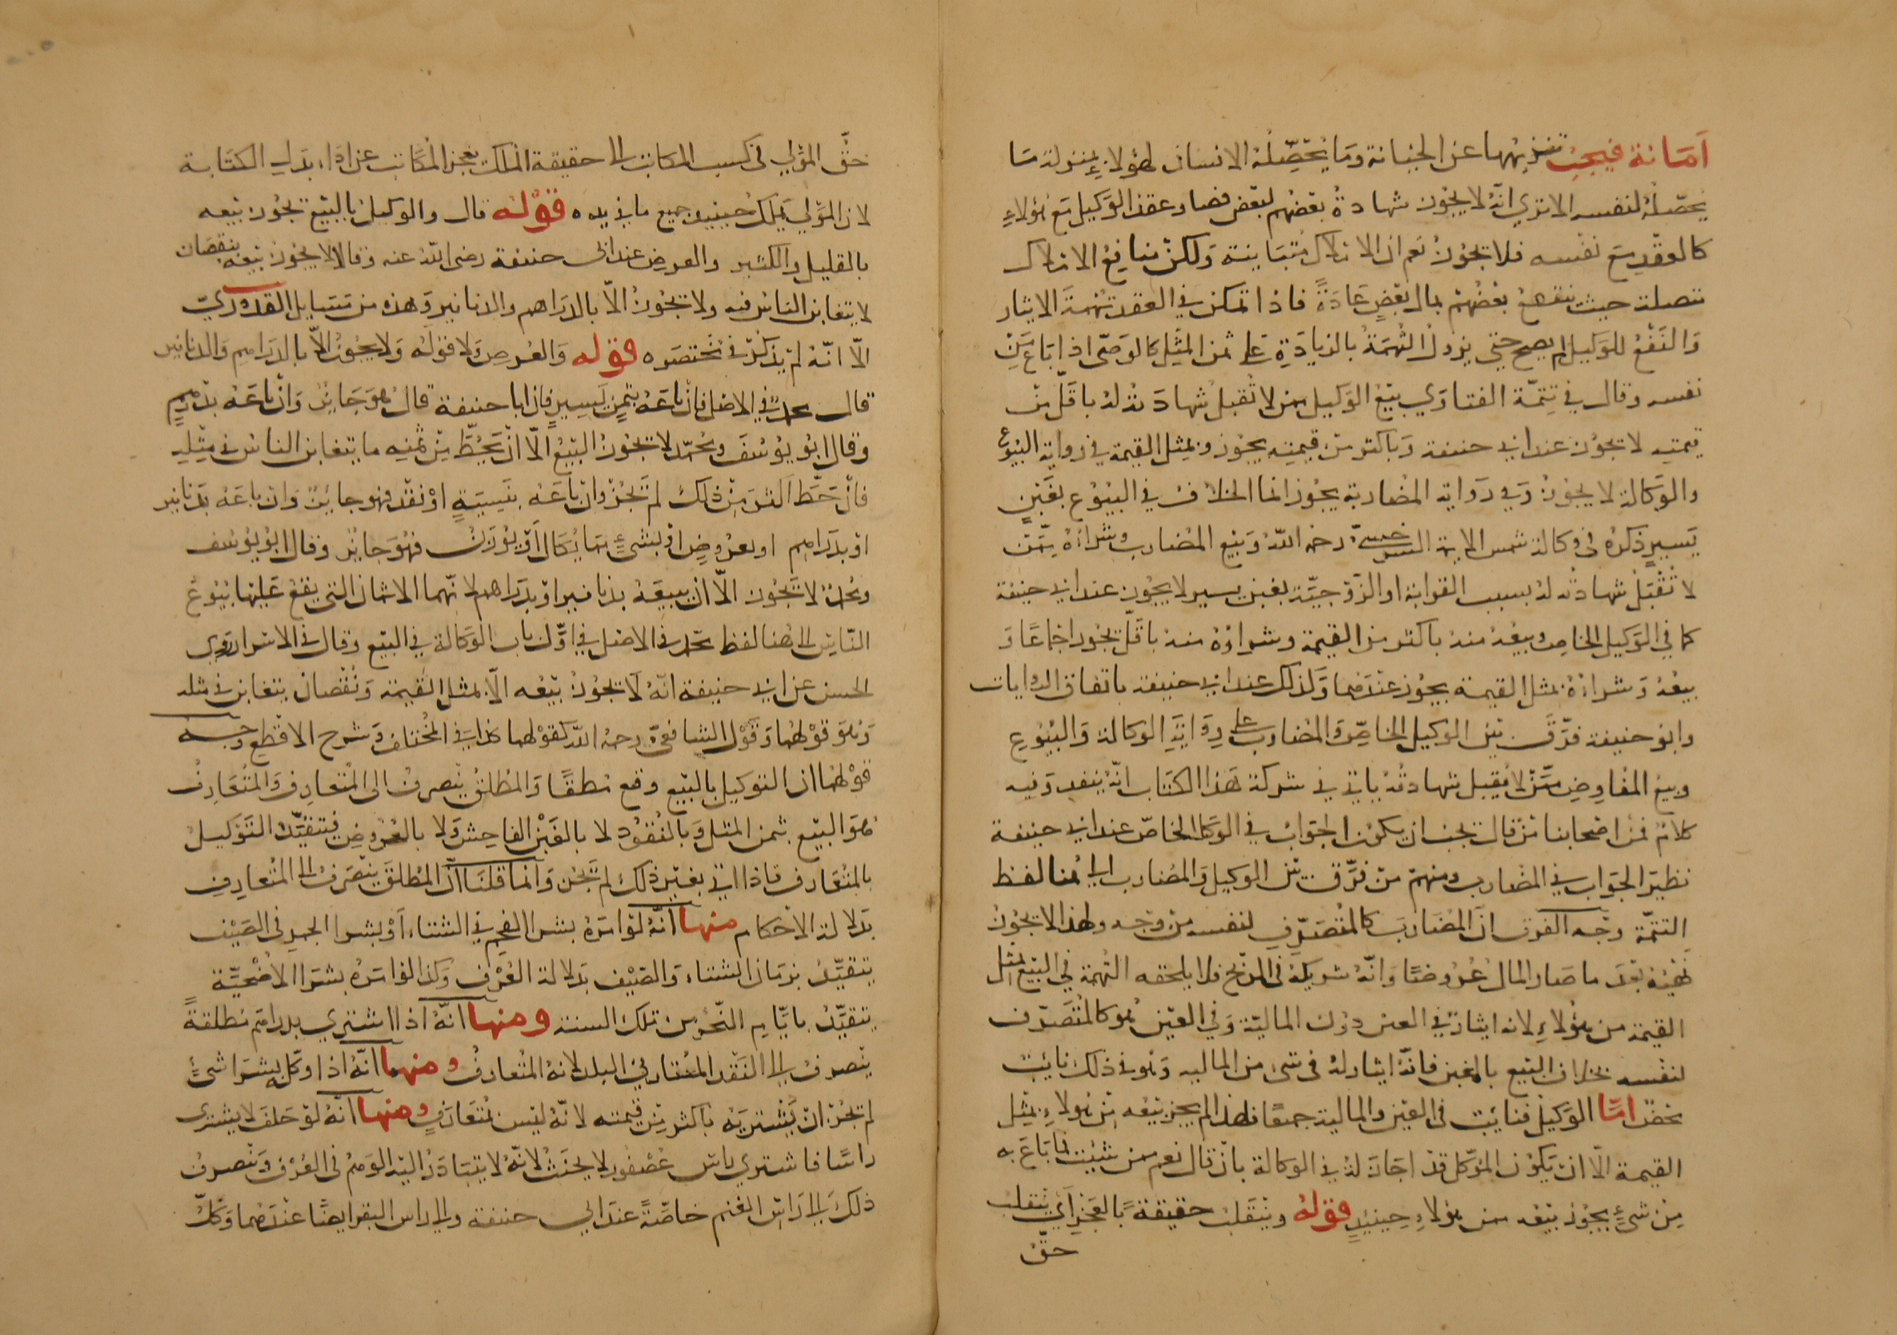 امانة فيجب تنزيهها عن الخيانة وما يحصّله الانسان لهؤلاء بمنزلة ما
يحصّله لنفسه الا ترى انه لا يجوز شهادة بعضهم لبعض فصار عقد الوكيل مع هؤلاء
كالعقد مع نفسه فلا يجوز نعم ان الاملاك متباينة ولكن منافع الاملاك
متصلة حيث ينتفع بعضهم بمال بعض عادةً فاذا تمكن في العقد تهمة الايثار
والنفع للوكيل لم يصح حتى يزول التهمة بالزيادة على ثمن المثل كالوصى اذا باع من
نفسه وقال في تتمّة الفتاوي بيع الوكيل ممن لا تقبل شهادته له باقلّ من
قيمته لا يجوز عند ابي حنيفة وباكثر من قيمته يجوز وبمثل القيمة في رواية البيوع
والوكالة لا يجوز وفي رواية المضاربة يجوز انما الخلاف في البيوع بغبن
يسير ذكره في وكالة شمس الائمة السرخسيّ رحمه الله وبيع المضارب وشراؤه ممّن
لا تقبل شهادته له بسبب القرابة او الزوجيّة بغبن يسير لا يجوز عند ابي حنيفة
كما في الوكيل الخاص وبيعه منه باكثر من القيمة وشراؤه منه باقلّ يجوز اجماعًا و
بيعه وشراؤه بمثل القيمة يجوز عندهما وكذلك عند ابي حنيفة باتفاق الروايات
وابو حنيفة فرّق بين الوكيل الخاصّ والمضارب على رواية الوكالة والبيوع
وبيع المفاوض ممّن لا يقبل شهادته ياتي في شركة هذا الكتاب انه ينفد وفيه
كلام فمن اصحابنا من قال يجب ان يكون الجواب في الوكيل الخاصّ عند ابي حنيفة
نظير الجواب في المضارب ومنهم من فرّق بين الوكيل والمضارب الى هنا لفظ
التتمّة وجه الفرق انّ المضارب كالمتصرّف لنفسه من وجه ولهذا لا يجوز
نهيه بعد ما صار المال عروضًا وانّه شريكه في الربح فلا يلحقه التهمة في البيع بمثل
القيمة من هؤلاء لانه ايثار في العين دون الماليّة وفي العين هو كالمتصرّف
لنفسه بخلاف البيع بالغبن فانّه ايثار له في شى من الماليه وهو في ذلك نايب
محض امّا الوكيل فنايب في العين والمالية جميعًا فلهذا لم يجز بيعه من هؤلاء بمثل
القيمة الّا ان يكون الموكل قد اجاز له في الوكالة بان قال نعم ممن شئت فما باع به
من شىءٍ يجوز بيعه ممن هؤلاءِ حينيذٍ قوله وينقلب حقيقةً بالعجز اي ينقلب
حقّ
حقّ المولى في كسب المكاتب الى حقيقة الملك بعجز المكاتب عن اداء بدل الكتابة
لان المولى يملك حينيذ جميع ما في يده قوله قال والوكيل بالبيع يجوز بيعه
بالقليل والكثير والعرض عند ابي حنيفة رضى الله عنه وقالا لا يجوز بيعه بنقصان
لا يتغابن الناس فيه ولا يجوز الّا بالدراهم والدنانير وهذه من مسايل القدوريّ
الّا انّه لم يذكر في مختصره قوله والعرض ولا قوله ولا يجوز الّا بالدراهم والدنانير
قال محمد في الاصل فان باعه بثمنٍ يسيرٍ فان ابا حنيفة قال هو جائز وان باعه بدرهمٍ
وقال ابو يوسف ومحمّد لا يجوز البيع الّا ان يحطّ من ثمنه ما يتغابن الناس في مثله
فان حطّ اكثر من ذلك لم يجز وان باعه بنسيةٍ او نقدٍ فهو جائز وان باعه بدنانير
او بدراهم او بعروضٍ او بشىءٍ مما يكال او يوزن فهو جائز وقال ابو يوسف
ومحمد لا يجوز الّا ان يبيعه بدنانير او بدراهم لانهما الاثمان التى يقع عليها بيوع
الناس الى هنا لفظ محمد في الاصل في اوّل باب الوكالة في البيع وقال في الاسرار روى
الحسن عن ابي حنيفة انّه لا يجوز بيعه الّا بمثل القيمة ونقصان يتغابن في مثله
وهو قولهما وقول الشافعيّ رحمه الله كقولهما كذا في المختلف وشرح الاقطع وجه
قولهما ان التوكيل بالبيع وقع مطلقًا والمطلق ينصرف الى المتعارف والمتعارف
هو البيع بثمن المثل وبالنقود لا بالغبن الفاحش ولا بالعروض فيتقيّد التوكيل
بالمتعارف فاذا اتى بغير ذلك لم يجز وانما قلنا انّ المطلق ينصرف الى المتعارف
بدلالة الاحكام منها انّه لو امره بشرا الفحم في الشتاء او بشرا الجمد في الصيف
يتقيّد بزمان الشتاء والصيف بدلالة العرف وكذا لو امره بشرا الاضحيّة
يتقيّد بايّام النحر من تلك السنة ومنها انّه اذا اشترى بدراهم مطلقةً
ينصرف الى النقد المعتاد في البلد لانه المتعارف ومنها انّه اذا وكّل بشرا شىءٍ
لم يجز ان يشتريه باكثر من قيمته لانه ليس بمتعارفٍ ومنها انّه لو حلف لا يشترى
راسًا فاشترى راس عصفور لا يحنث لانّه لا يتبادر اليه الوهم في العرف وينصرف
ذلك الى راس الغنم خاصّةً عند ابي حنيفة والى راس البقر ايضًا عندهما وكلّ